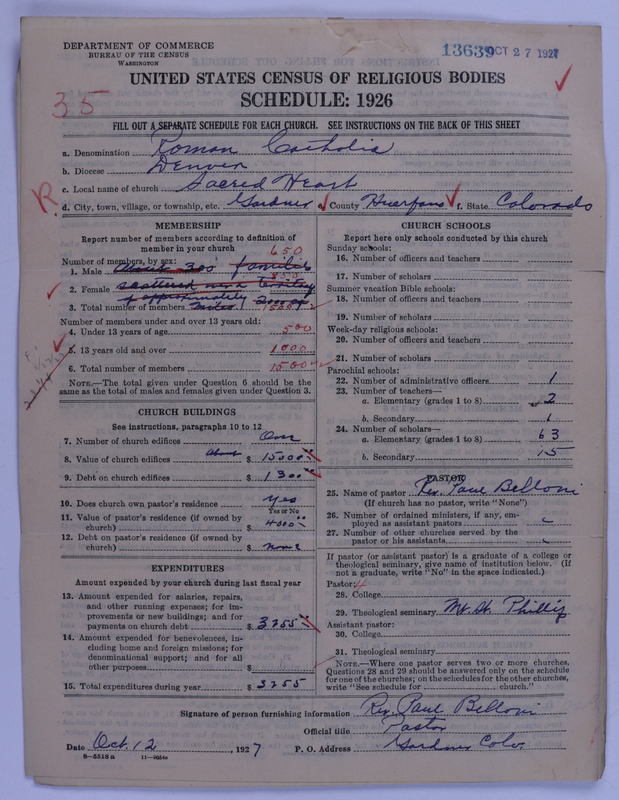 DEPARTMENT OF COMMERCE
BUREAU OF THE CENSUS
WASHINGTON
13639 OCT 27 1927
UNITED STATES CENSUS OF RELIGIOUS BODIES
SCHEDULE: 1926
35
FILL OUT A SEPARATE SCHEDULE FOR EACH CHURCH. SEE INSTRUCTIONS ON THE BACK OF THIS SHEET
a. Denomination Roman Catholic
b. Diocese Denver
c. Local name of church Sacred Heart
R
d. City, town, village, or township, etc. Gardner e. County Huerfano f. State Colorado
MEMBERSHIP
Report number of members according to definition of
member in your church
Number of members, by sex:
650
1. Male About 300 families
850
2. Female scattered over a territory
of approximately 2000 sq
3. Total number of members miles 1500
Number of members under and over 13 years old:
4. Under 13 years of age 500
5. 13 years old and over 1000
6. Total number of members 1500
NOTE.—The total given under Question 6 should be the
same as the total of males and females given under Question 3.
CHURCH BUILDINGS
See instructions, paragraphs 10 to 12
7. Number of church edifices One
8. Value of church edifices About $ 15000
9. Debt on church edifices $ 1300
10. Does church own pastor's residence yes
Yes or No
11. Value of pastor's residence (if owned by
church) $ 4000
12. Debt on pastor's residence (if owned by
church) $ none
EXPENDITURES
Amount expended by your church during last fiscal year
13. Amount expended for salaries, repairs,
and other running expenses; for im-
provements or new buildings; and for
payments on church debt $ 3255
14. Amount expended for benevolences, in-
cluding home and foreign missions; for
denominational support; and for all
other purposes $
15. Total expenditures during year $ 3255
CHURCH SCHOOLS
Report here only schools conducted by this church
Sunday schools:
16. Number of officers and teachers
17. Number of scholars
Summer vacation Bible schools:
18. Number of officers and teachers
19. Number of scholars
Week-day religious schools:
20. Number of officers and teachers
21. Number of scholars
Parochial schools:
22. Number of administrative officers 1
23. Number of teachers—
a. Elementary (grades 1 to 8) 2
b. Secondary 1
24. Number of scholars—
a. Elementary (grades 1 to 8) 63
b. Secondary 15
PASTOR
25. Name of pastor Rev. Paul Belloni
(If church has no pastor, write "None")
26. Number of ordained ministers, if any, em-
ployed as assistant pastors
27. Number of other churches served by the
pastor or his assistants
If pastor (or assistant pastor) is a graduate of a college or
theological seminary, give name of institution below. (If
not a graduate, write "No" in the space indicated.)
Pastor:
28. College
29. Theological seminary Mt. St. Phillip
Assistant pastor:
30. College
31. Theological seminary
NOTE.—Where one pastor serves two or more churches,
Questions 28 and 29 should be answered only on the schedule
for one of the churches; on the schedules for the other churches,
write "See schedule for church."
Signature of person furnishing information Rev. Paul Belloni
Official title Pastor
Date Oct. 12, 1927 P. O. Address Gardner Colo.
8—5518 a 11—9054a